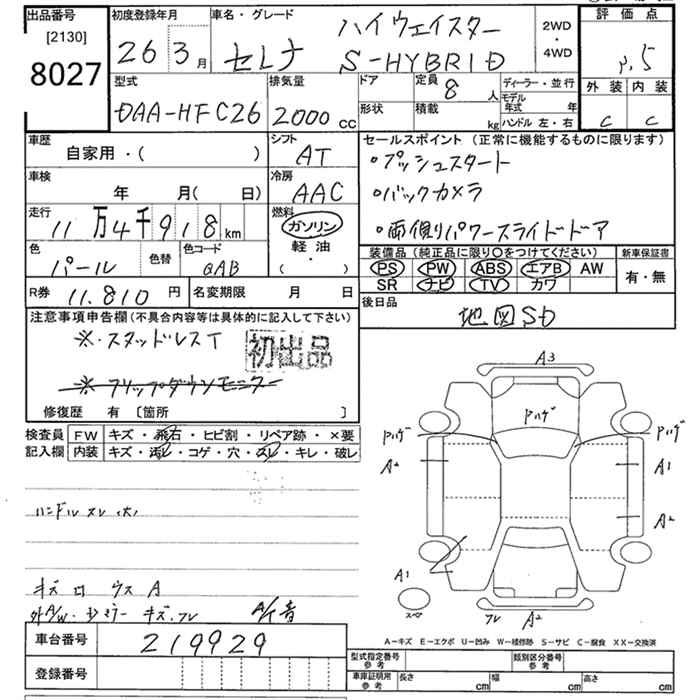 出品番号 初度登録年月 車名・グレード ハイウェイスター 2WD・4WD 評価点
[2130]
8027 26 3月 セレナ S-HYBRID
外装 内装
C C
型式 排気量 ドア 定員 8人 ディーラー・並行
DAA-HFC26 2000cc 形状 積載 kg モデル年式 年
ハンドル 左・右
車歴 シフト セールスポイント (正常に機能するものに限ります)
自家用・( ) AT ・プッシュスタート
車検 冷房
年 月( 日) AAC ・バックカメラ
走行 燃料
11万4千918km ガソリン ・両側パワースライドドア
軽油
・
( )
色 色替 色コード 装備品 (純正品に限り○をつけてください) 新車保証書
パール QAB PS PW ABS エアB AW 有・無
SR ナビ TV カワ
R券 11.810円 名変期限 月 日 後日品
地図SD
注意事項申告欄(不具合内容等は具体的に記入して下さい)
※・スタッドレスT 初出品
※フリップダウンモニター
修復歴 有 [箇所 ]
検査員 FW キズ・飛石・ヒビ割・リペア跡・×要
記入欄 内装 キズ・汚レ・コゲ・穴・スレ・キレ・破レ
ハンドルスレ(大)
キズ
A3
Pハゲ
Pハゲ Pハゲ
A2 A1
A2
A1
スペア
A2
A-キズ E-エクボ U-凹み W-補修跡 S-サビ C-腐食 XX-交換済
車台番号 219929
型式指定番号 参考 類別区分番号 参考
登録番号
車庫証明用 参考 長さ cm 幅 cm 高さ cm